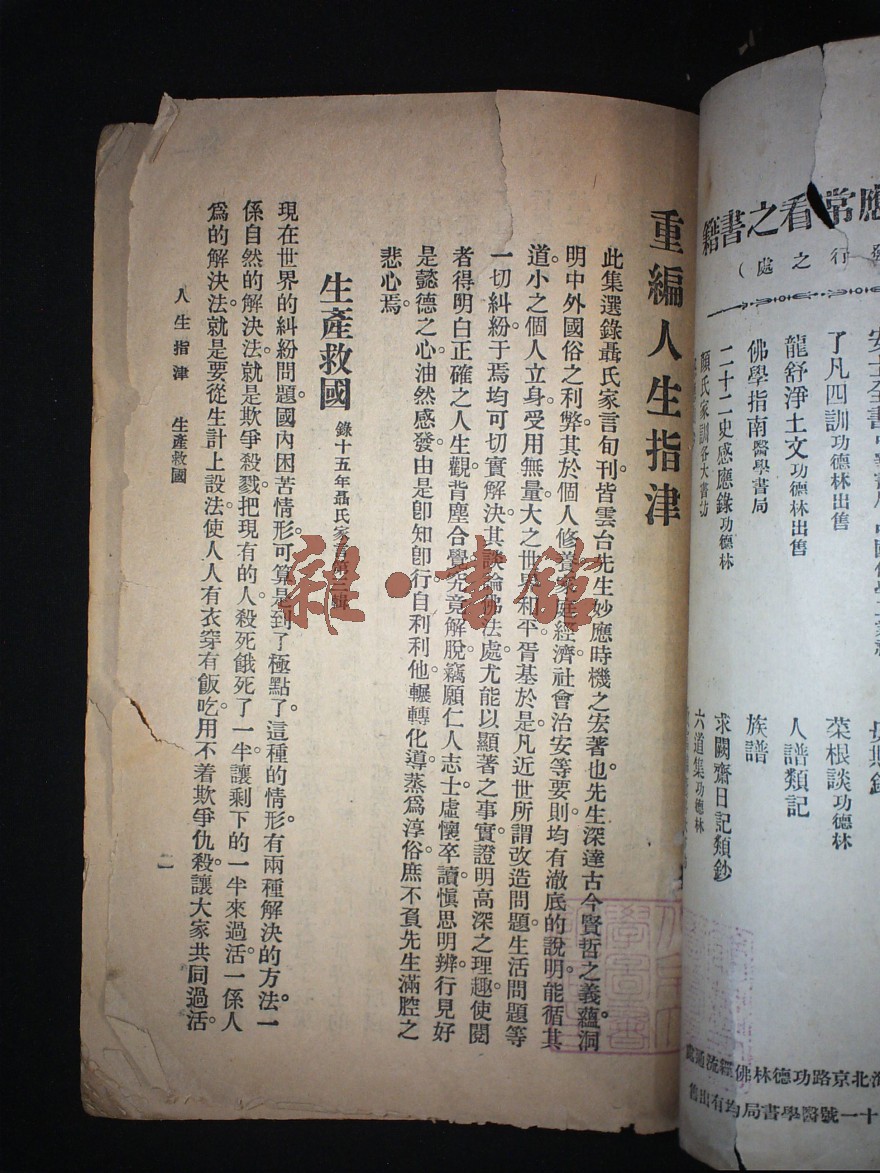 重編人生指津
此集選錄聶氏家言旬刊。皆雲台先生妙應時機之宏著也。先生深達古今賢哲之義蘊。洞
明中外國俗之利弊。其於個人修養。家庭經濟。社會治安等要則。均有澈底的說明。能循其
道。小之個人立身。受用無量。大之世界和平。胥基於是。凡近世所謂改造問題。生活問題等
一切糾紛。于焉均可切實解決。其談論佛法處。尤能以顯著之事實。證明高深之理趣。使閱
者得明白正確之人生觀。背塵合覺。究竟解脫。竊願仁人志士。虛懷卒讀。慎思明辨。行見好
是懿德之心。油然感發。由是卽知卽行。自利利他。輾轉化導。蒸為淳俗。庶不負先生滿腔之
悲心焉。
生產救國 錄十五年聶氏家言第三輯
現在世界的糾紛問題。國內困苦情形。可算是到了極點了。這種的情形。有兩種解決的方法。一
係自然的解決法。就是欺爭殺戮。把現有的人。殺死餓死了一半。讓剩下的一半來過活。一係人
爲的解決法。就是要從生計上設法。使人人有衣穿有飯吃。用不着欺爭仇殺。讓大家共同過活。
人生指津 生產救國 一
雜·書館
應常看之書籍
行之處）
了凡四訓 功德林出售
菜根談 功德林
龍舒淨土文 功德林出售
人譜類記
佛學指南 醫學書局
族譜
二十二史感應錄 功德林
求闕齋日記類鈔
顏氏家訓 各大書坊
六道集 功德林
海北京路功德林佛經流通處
十一號醫學書局均有出售